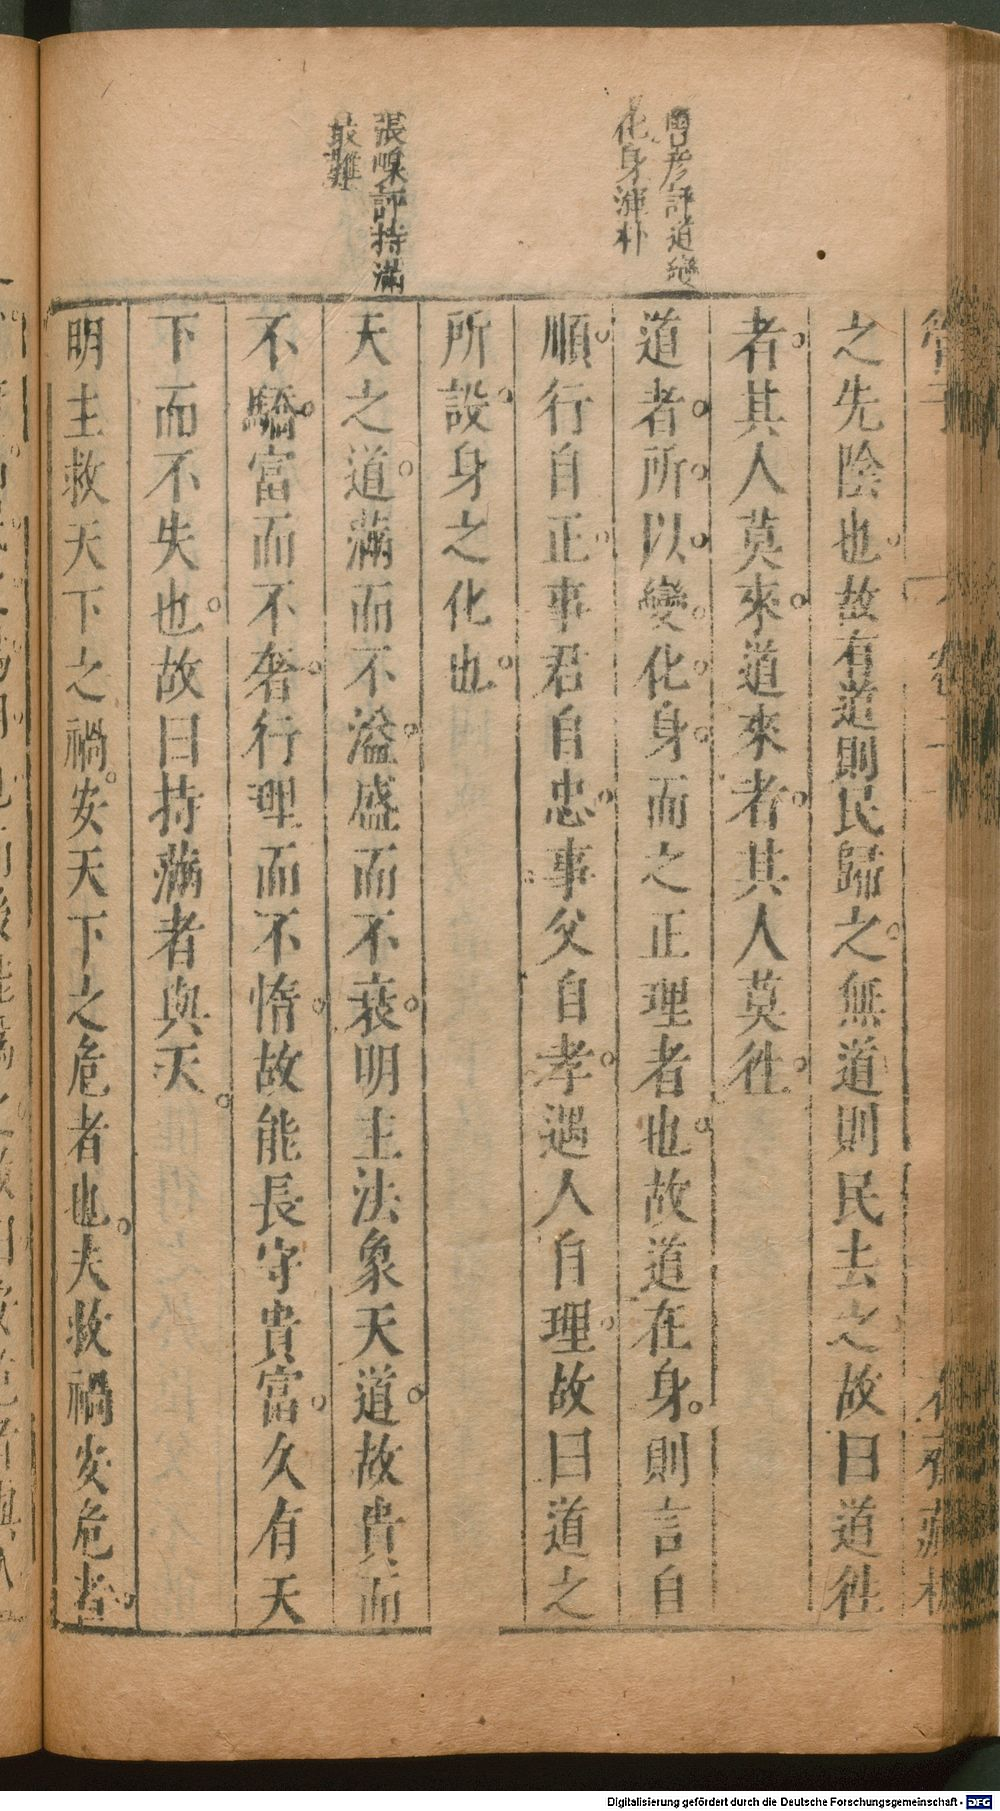 管子
之先陰也故有道則民歸之無道則民去之故曰道徃
者其人莫來道來者其人莫徃
道者所以變化身而之正理者也故道在身則言自
順行自正事君自忠事父自孝遇人自理故曰道之
所設身之化也
天之道滿而不溢盛而不衰明主法象天道故貴而
不驕富而不奢行理而不惰故能長守貴富久有天
下而不失也故曰持滿者與天
明主救天下之禍安天下之危者也夫救禍安危者
彥評道變
化身渾朴
張嵲評持滿
最難
Digitalisierung gefördert durch die Deutsche Forschungsgemeinschaft - DFG